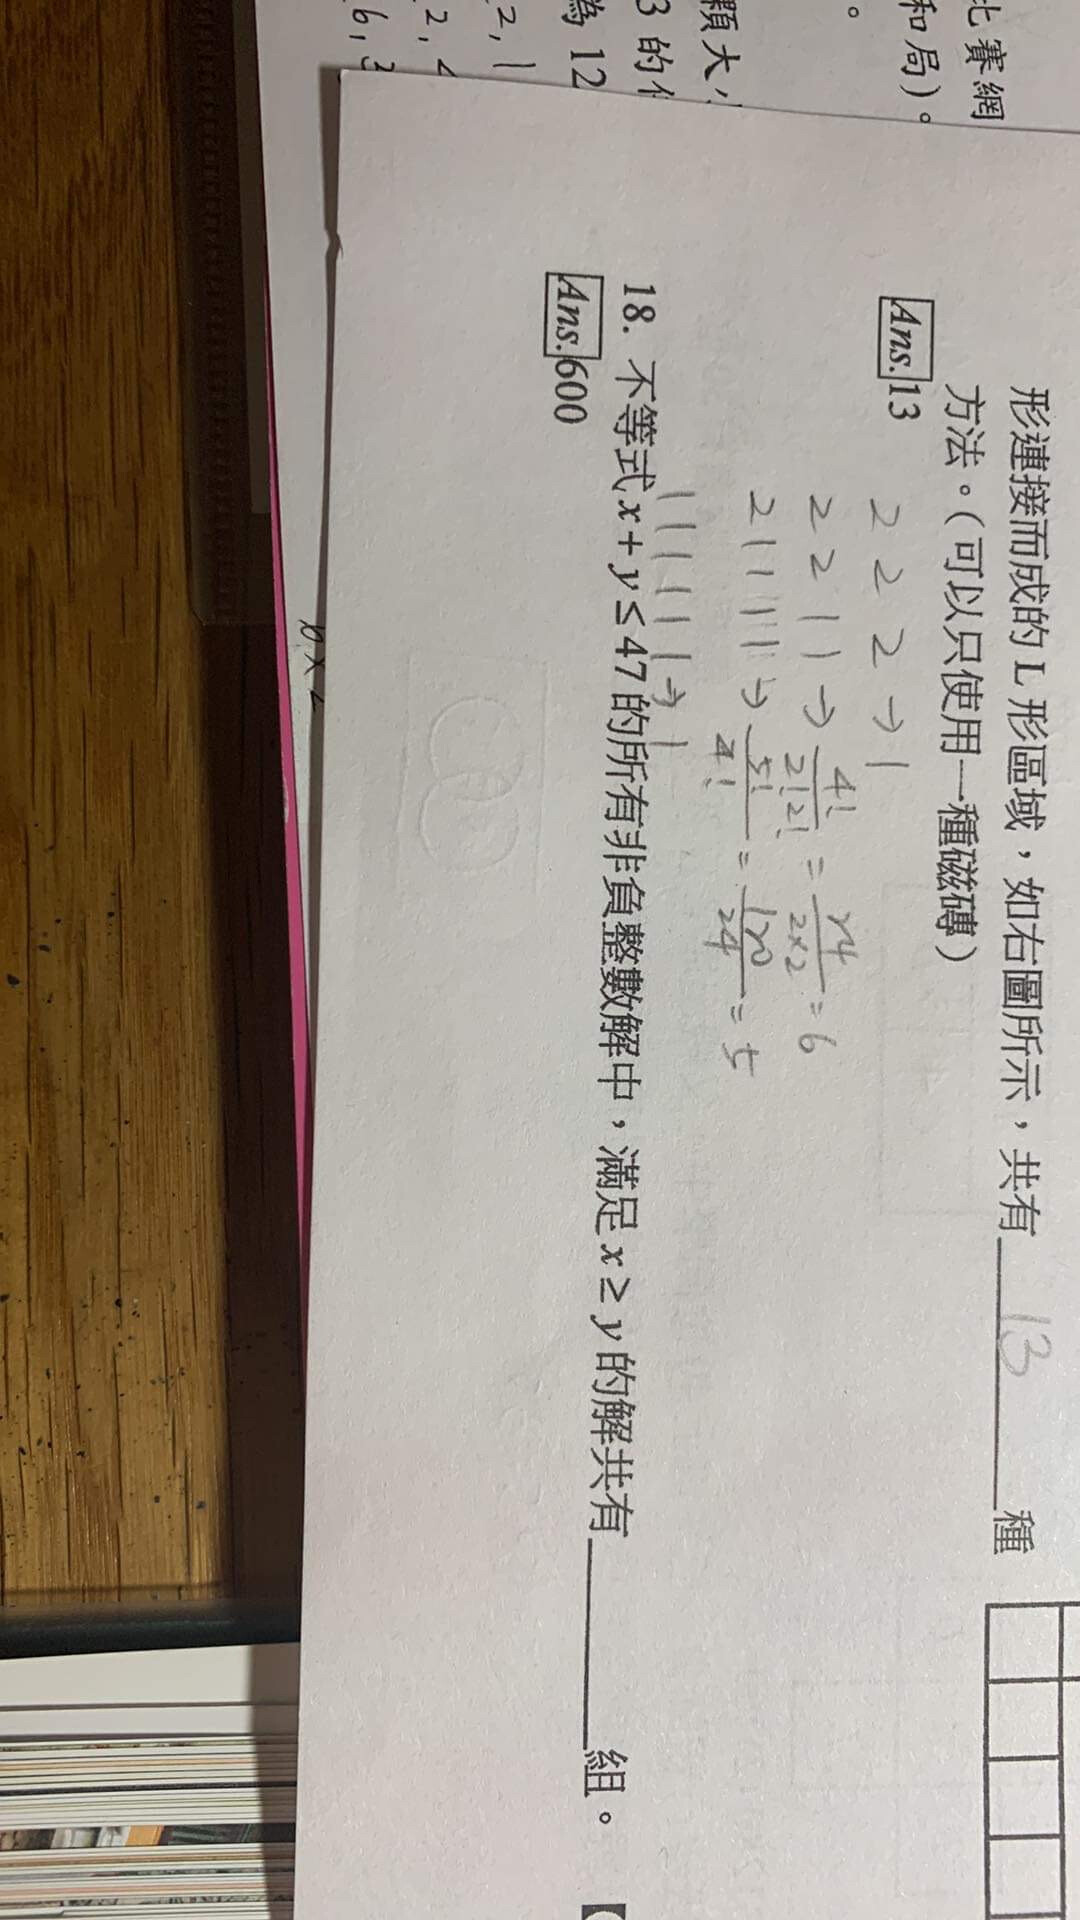 比賽網
和局)。
顆大
3 的
為 12
2, 1
2,
6, 3
形連接而成的 L 形區域,如右圖所示,共有 13 種
方法。(可以只使用一種磁磚)
Ans. 13
2 2 2 → 1
2 2 1 1 → 4!/2!2! = 24/2×2 = 6
2 1 1 1 1 → 5!/4! = 120/24 = 5
1 1 1 1 1 1 → 1
18. 不等式 x + y ≤ 47 的所有非負整數解中,滿足 x ≥ y 的解共有 組。
Ans. 600